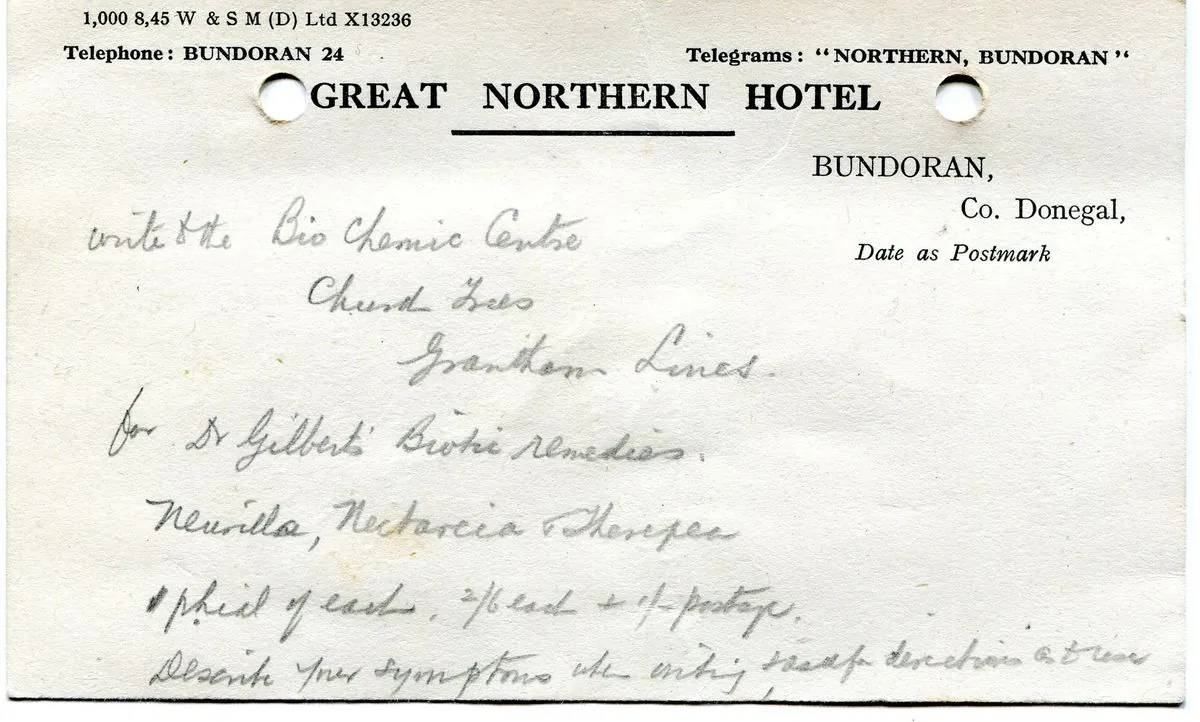 1,000 8,45 W & S M (D) Ltd X13236
Telephone: BUNDORAN 24
Telegrams: "NORTHERN, BUNDORAN"
GREAT NORTHERN HOTEL
BUNDORAN,
Co. Donegal,
Date as Postmark
write to the Bio Chemic Centre
Trees
Grantham Lincs.
for Dr Gilbert's Biotic remedies.
Neurilla, Nectarcia & Therepea
1 phial of each, 2/6 each + 1/- postage.
Describe your symptoms when writing, & ask for directions as to use